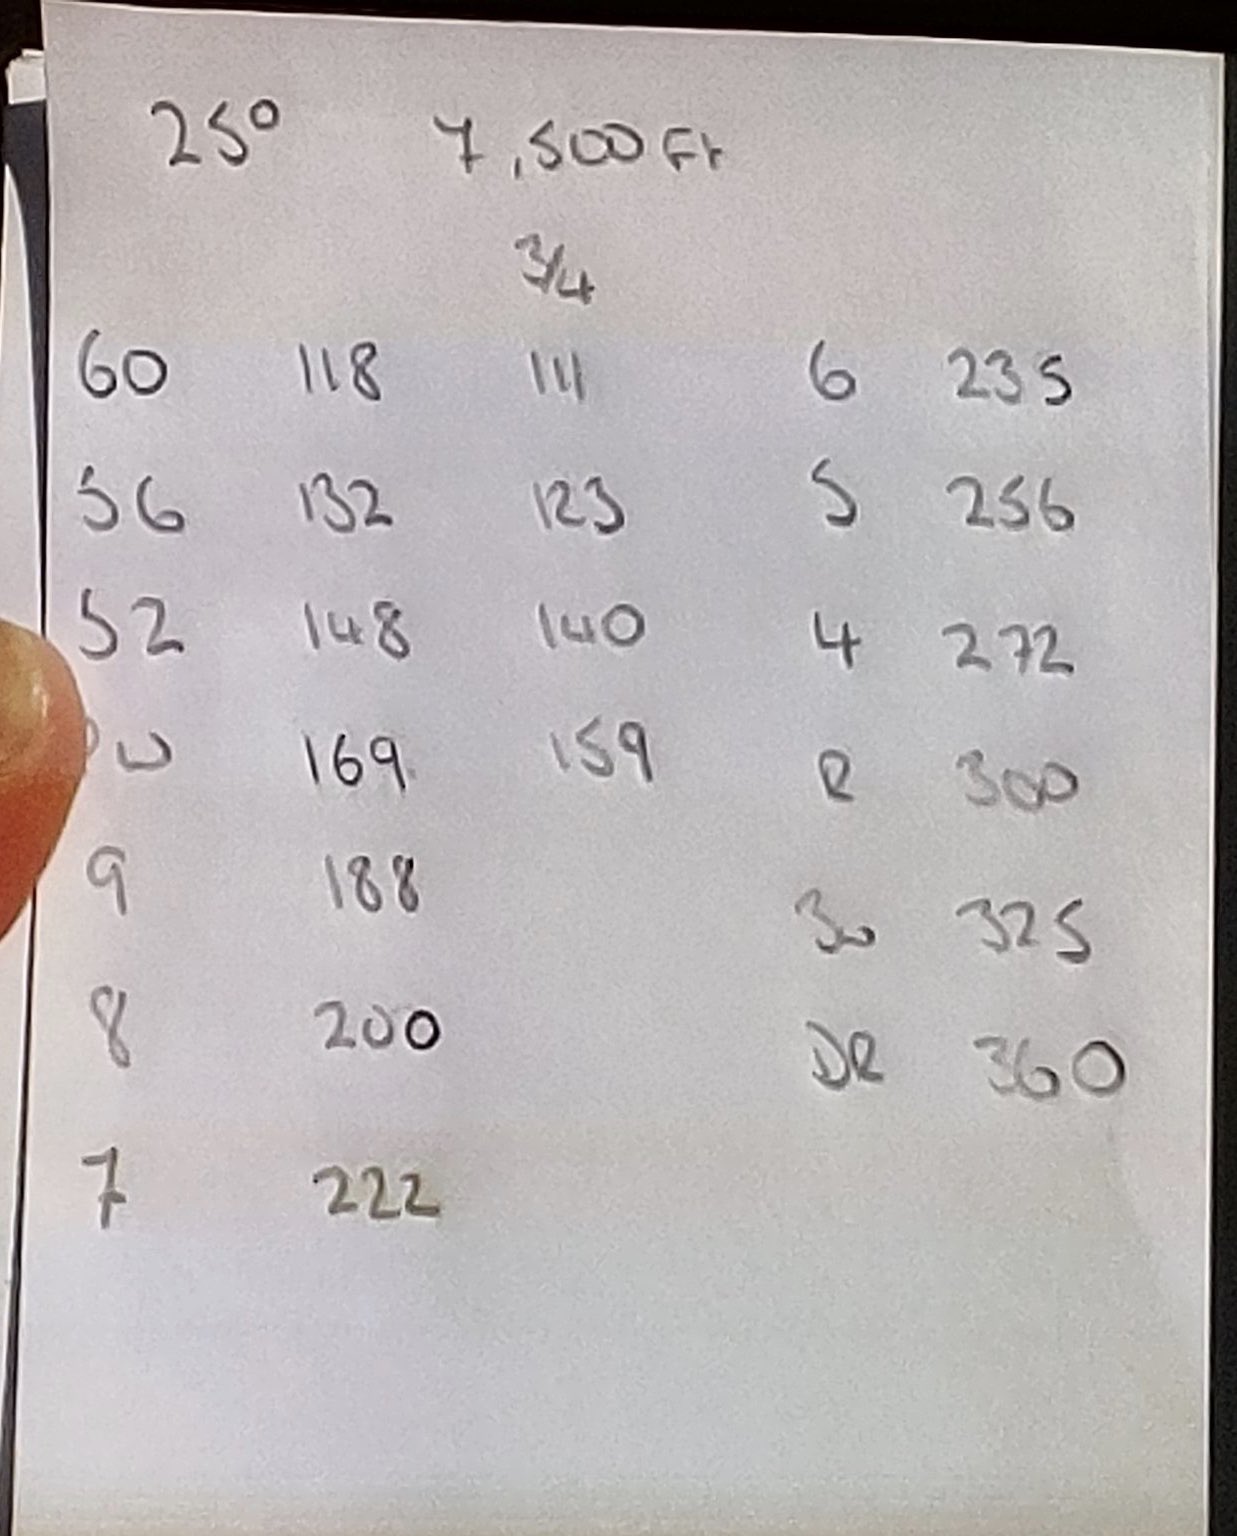 25° 7,500 Ft
3/4
60 118 111 6 235
56 132 123 5 256
52 148 140 4 272
PW 169 159 R 300
9 188 3w 325
8 200 DR 360
7 222